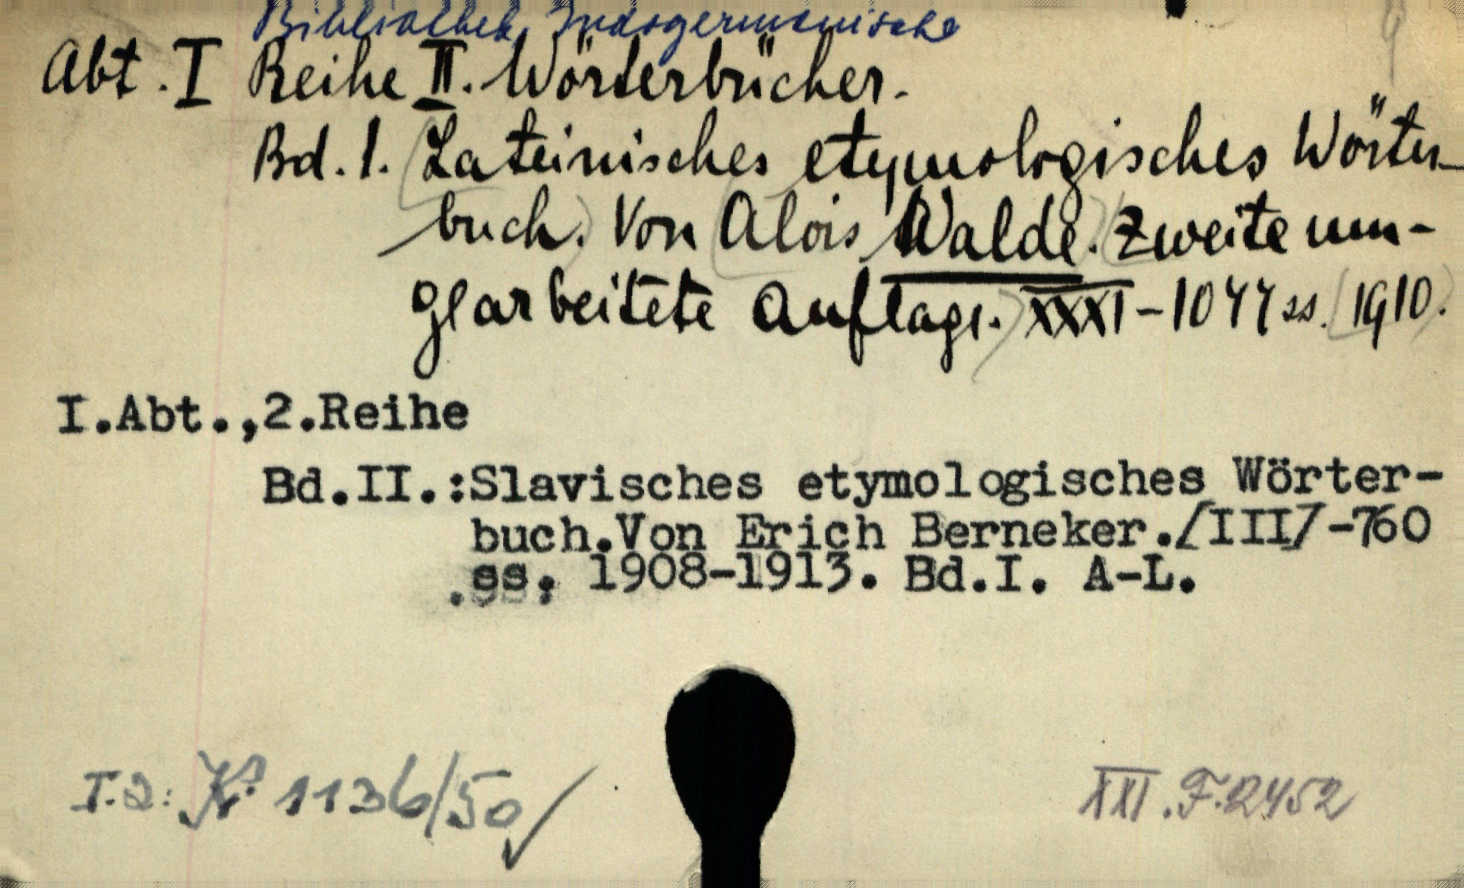 Bibliothek, Indogermanische
Abt. I Reihe II. Wörterbücher.
Bd. 1. (Lateinisches etymologisches Wörter-
buch). Von (Alois Walde. (Zweite um-
gearbeitete Auflage.) XXXI-1044 ss. (1910.)
I.Abt.,2.Reihe
Bd.II.:Slavisches etymologisches Wörter-
buch.Von Erich Berneker./III/-760
ss. 1908-1913. Bd.I. A-L.
I.2: K° 1136/50 ✓
XXI.F.2452